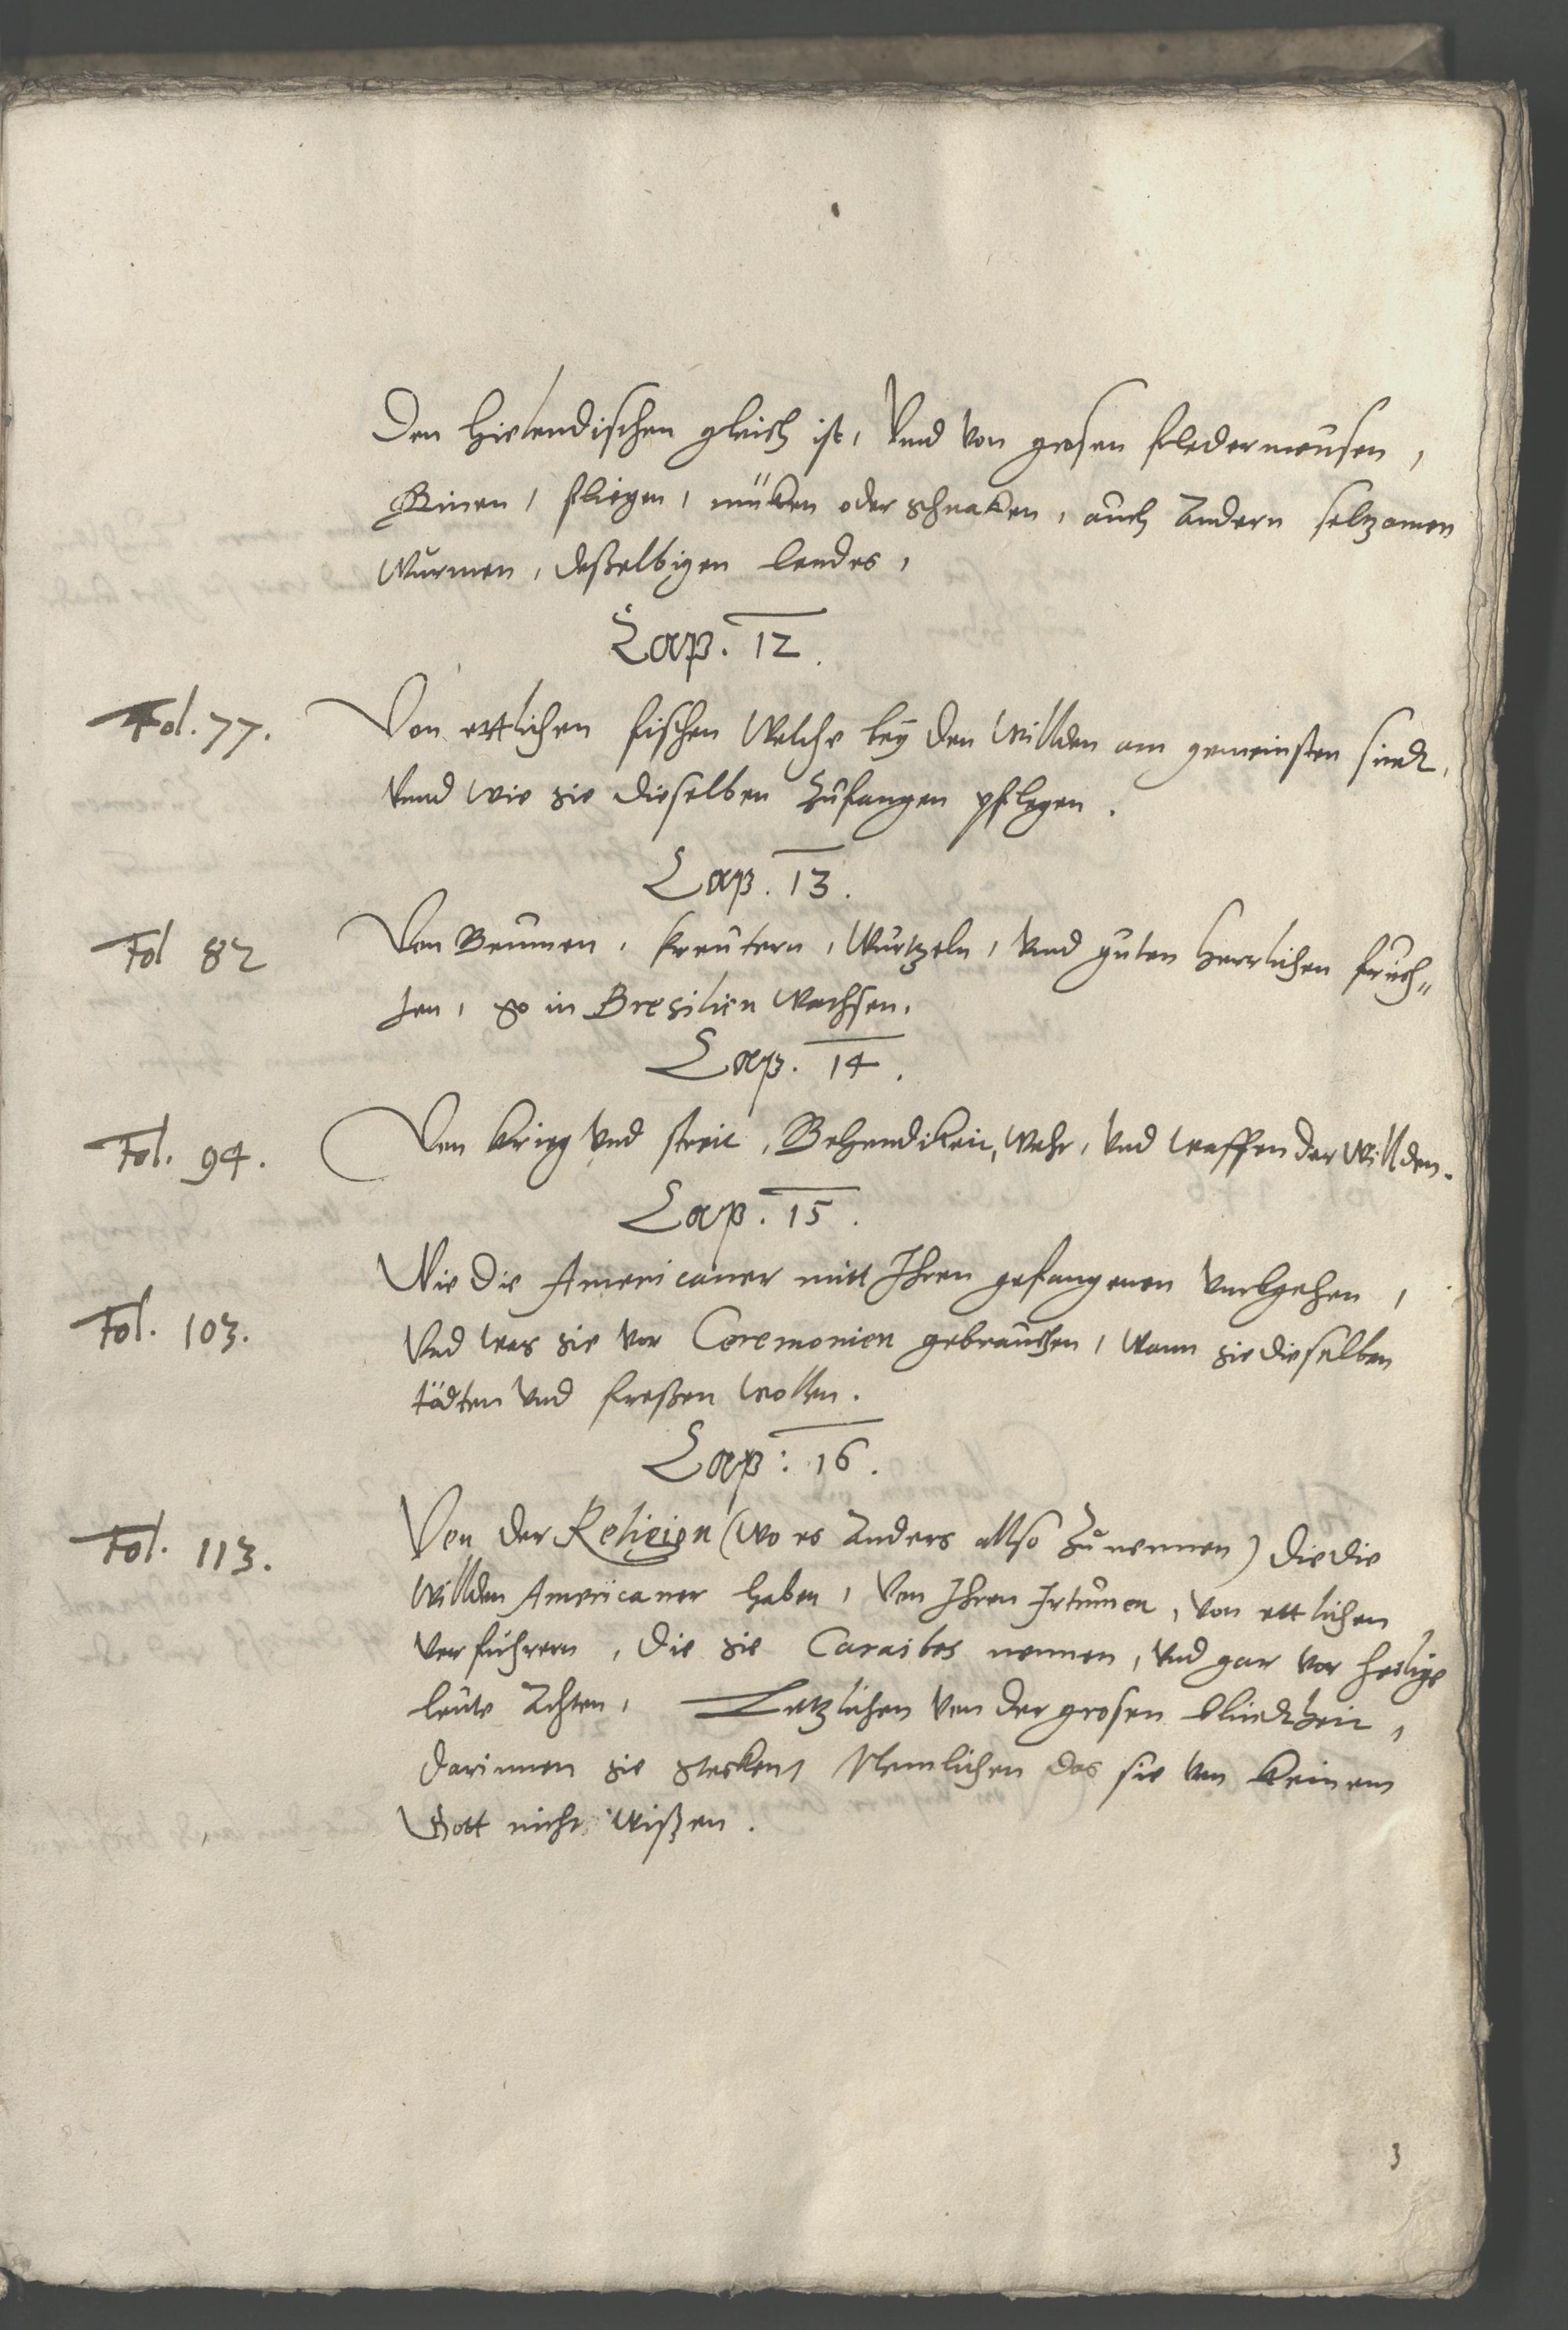 Den hielendischen gleich ist, Vnnd von grosen fledermeusen,
Binen, fliegen, müken oder schnaken, auch Andern seltzamen
Wurmen, deßelbigen landes,
Cap. 12.
Fol. 77.
Von ettlichen fischen Welche bey den Willden am gemeinsten sindt,
Vnnd wie sie dieselben zufangen pflegen.
Cap. 13.
Fol 82
Von Beumen, kreutern, Wurtzeln, Vnd guten herrlichen früch„
ten, so in Bresilien Wachsen,
Cap. 14.
Fol. 94.
Von krieg Vnd streit, Behendikeit, Wehr, Vnd waffen der Willden.
Cap. 15.
Wie die Americaner mitt Ihren gefangenen Vmbgehen,
Fol. 103.
Vnd was sie vor Ceremonien gebrauchen, Wann sie dieselben
tödten Vnd freßen wollen.
Cap: 16.
Fol. 113.
Von der Religion (Wo es Anders allso zu nennen) die die
Willden Americaner haben, Von Ihren Irtumen, Von ettlichen
Verführern, die sie Caraibes nennen, Vnd gar vor heilige
leute Achten, Letzlichen Von der grosen blindtheit,
darinnen sie stecken, Nemlichen das sie von keinem
Gott nicht Wißen.
3